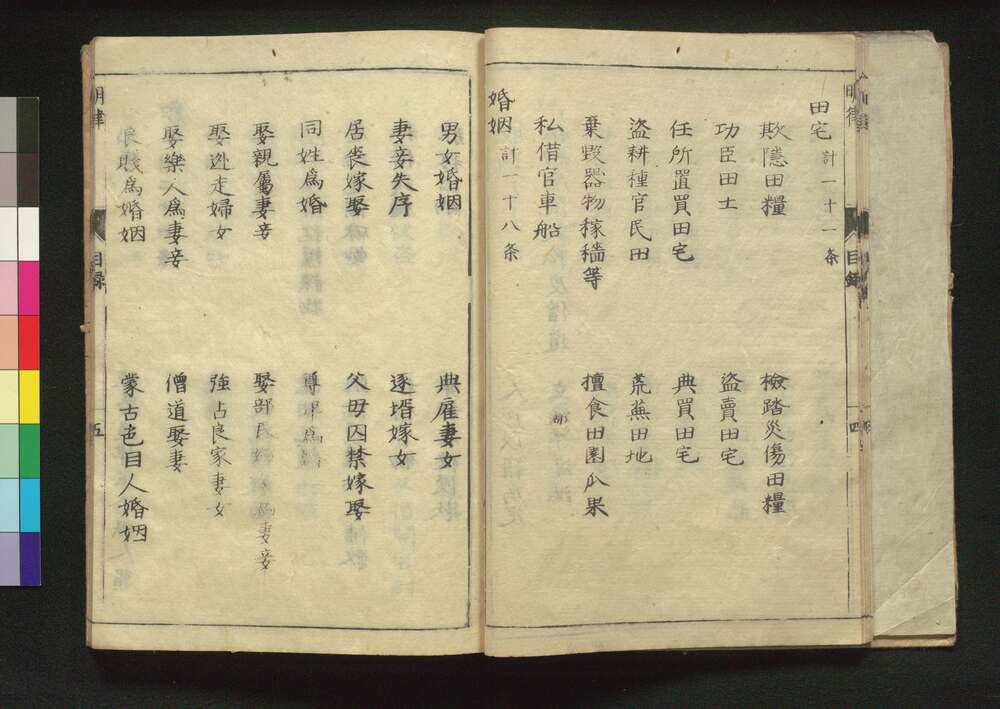 明律 目録 四
田宅 計一十一条
欺隱田糧 檢踏災傷田糧
功臣田土 盜賣田宅
任所置買田宅 典買田宅
盜耕種官民田 荒蕪田地
棄毀器物稼穡等 擅食田園瓜果
私借官車船
婚姻 計一十八条
男女婚姻 典雇妻女
妻妾失序 逐壻嫁女
居喪嫁娶 父母囚禁嫁娶
同姓爲婚 尊卑爲婚
娶親屬妻妾 娶部民婦女爲妻妾
娶逃走婦女 強占良家妻女
娶樂人爲妻妾 僧道娶妻
良賤爲婚姻 蒙古色目人婚姻
明律 目録 五